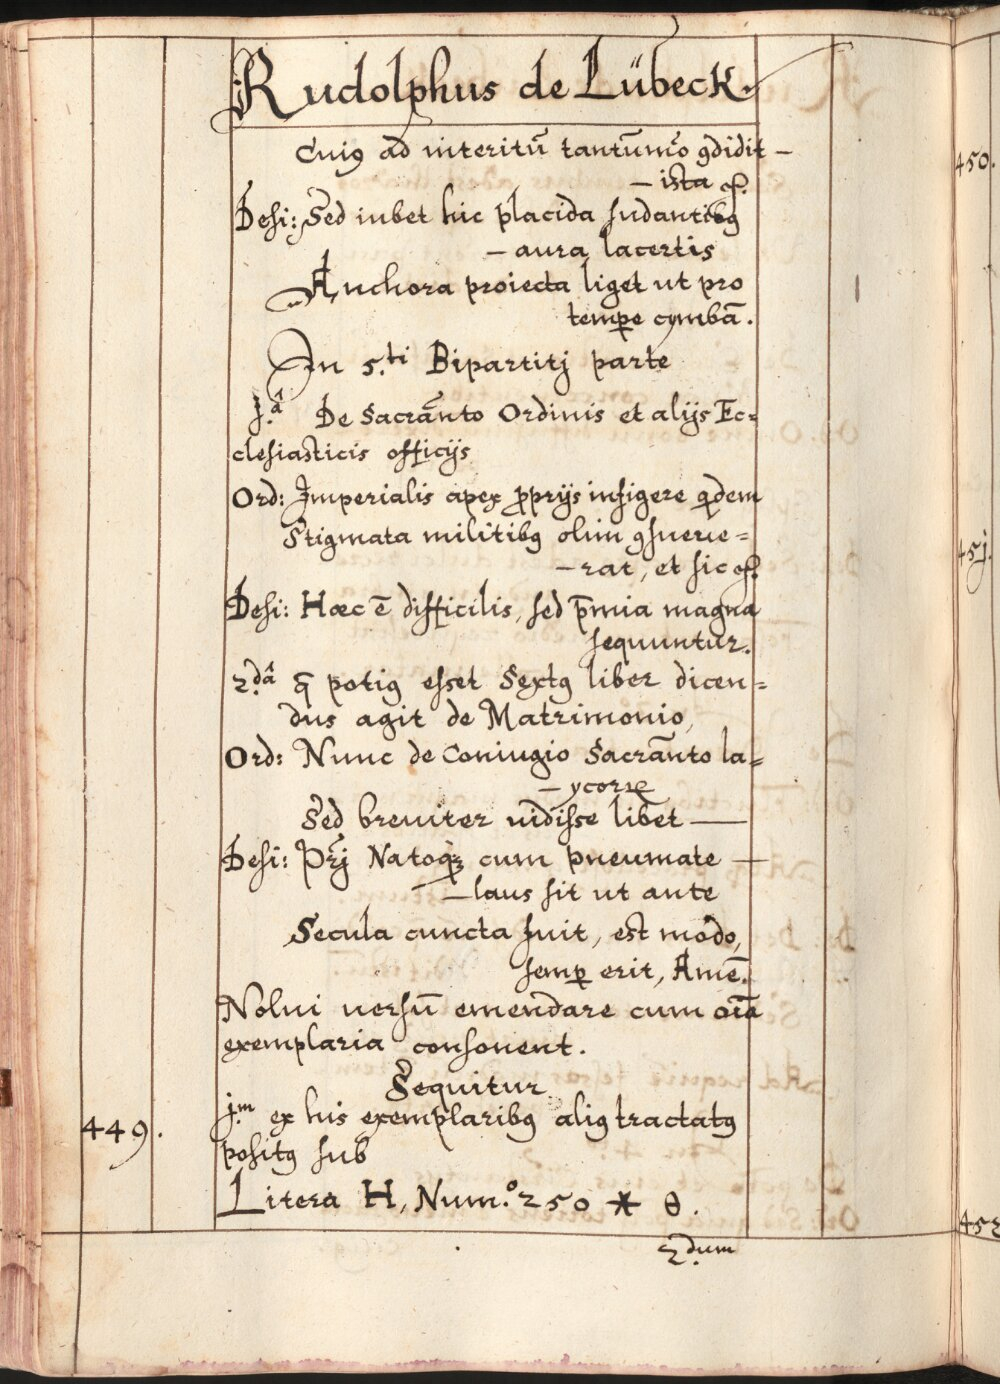 Rudolphus de Lübeck.
Cuiꝰ ad interitū tantūmō ꝯdidit –
– ista &.
Desi: Sed iubet hic placida sudantibꝰ
– aura lacertis
Anchora proiecta liget ut pro
tempe cymbā.
In 5.ti Bipartitj parte
j.â De Sacrānto Ordinis et alijs Ec=
clesiasticis officijs
Ord: Imperialis apex ꝓprijs insigere qdem
Stigmata militibꝰ olim ꝯsueue=
– rat, et sic &.
Desi: Hæc ē difficilis, sed p̄mia magna
sequuntur.
2.dâ q̄ potiꝰ esset Sextꝰ liber dicen=
dus agit de Matrimonio,
Ord: Nunc de Coniugio Sacrānto la=
– ycorꝝ
Sed breuiter uidisse libet —
Desi: Pr̄j Natoqꝫ cum pneumate —
– laus sit ut ante
Secula cuncta fuit, est modo,
semꝑ erit, Amē.
Nolui uersū emendare cum oīa
exemplaria consonent.
Sequitur
449. j.m ex his exemplaribꝰ aliꝰ tractatꝰ
positꝰ sub
Litera H, Num.º 250 * θ.
2.dum
450.
45j.
452